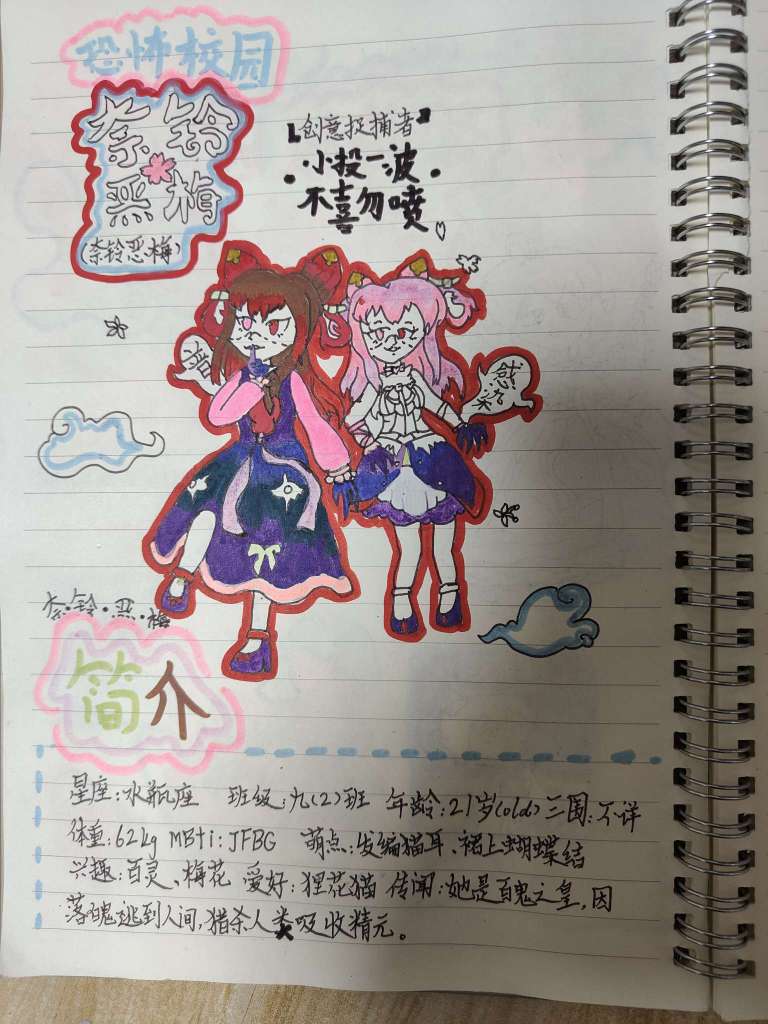 恐怖校园
奈铃
恶梅
(奈铃恶梅)
【创意捉捕者】
·小投一波·
不喜勿喷
感染
奈·铃·恶·梅
简介
星座:水瓶座 班级:九(2)班 年龄:21岁(old) 三围:不详
体重:62kg MBti:JFBG 萌点:发编猫耳、裙上蝴蝶结
兴趣:百灵、梅花 爱好:狸花猫 传闻:她是百鬼之皇,因
落魄逃到人间,猎杀人类吸收精元。